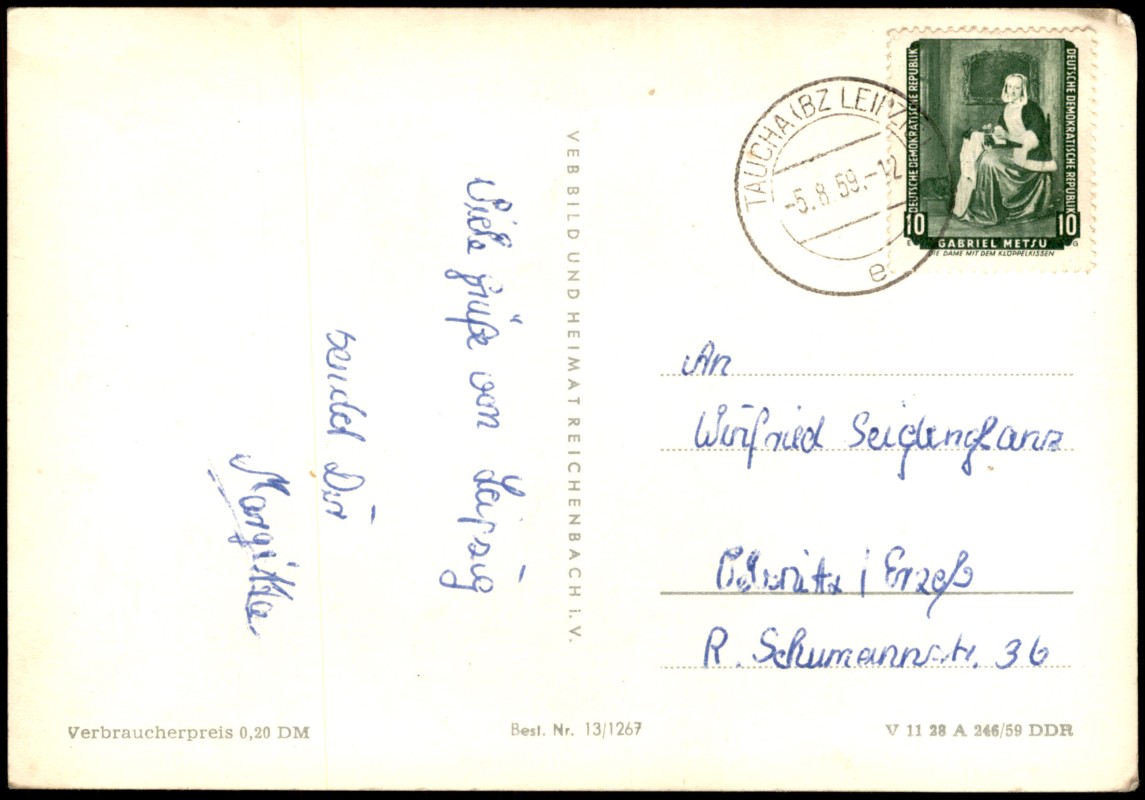 Viele Grüße von Leipzig
sendet Dir
Margitta.
VEB BILD UND HEIMAT REICHENBACH i. V.
TAUCHA (BZ LEIPZIG)
-5.8.59.-12
e
DEUTSCHE DEMOKRATISCHE REPUBLIK
DEUTSCHE DEMOKRATISCHE REPUBLIK
10 10
GABRIEL METSU
DIE DAME MIT DEM KLÖPPELKISSEN
An
Winfried Seidenglanz
/ Erzgb
R. Schumannstr. 36
Verbraucherpreis 0,20 DM
Best. Nr. 13/1267
V 11 28 A 246/59 DDR